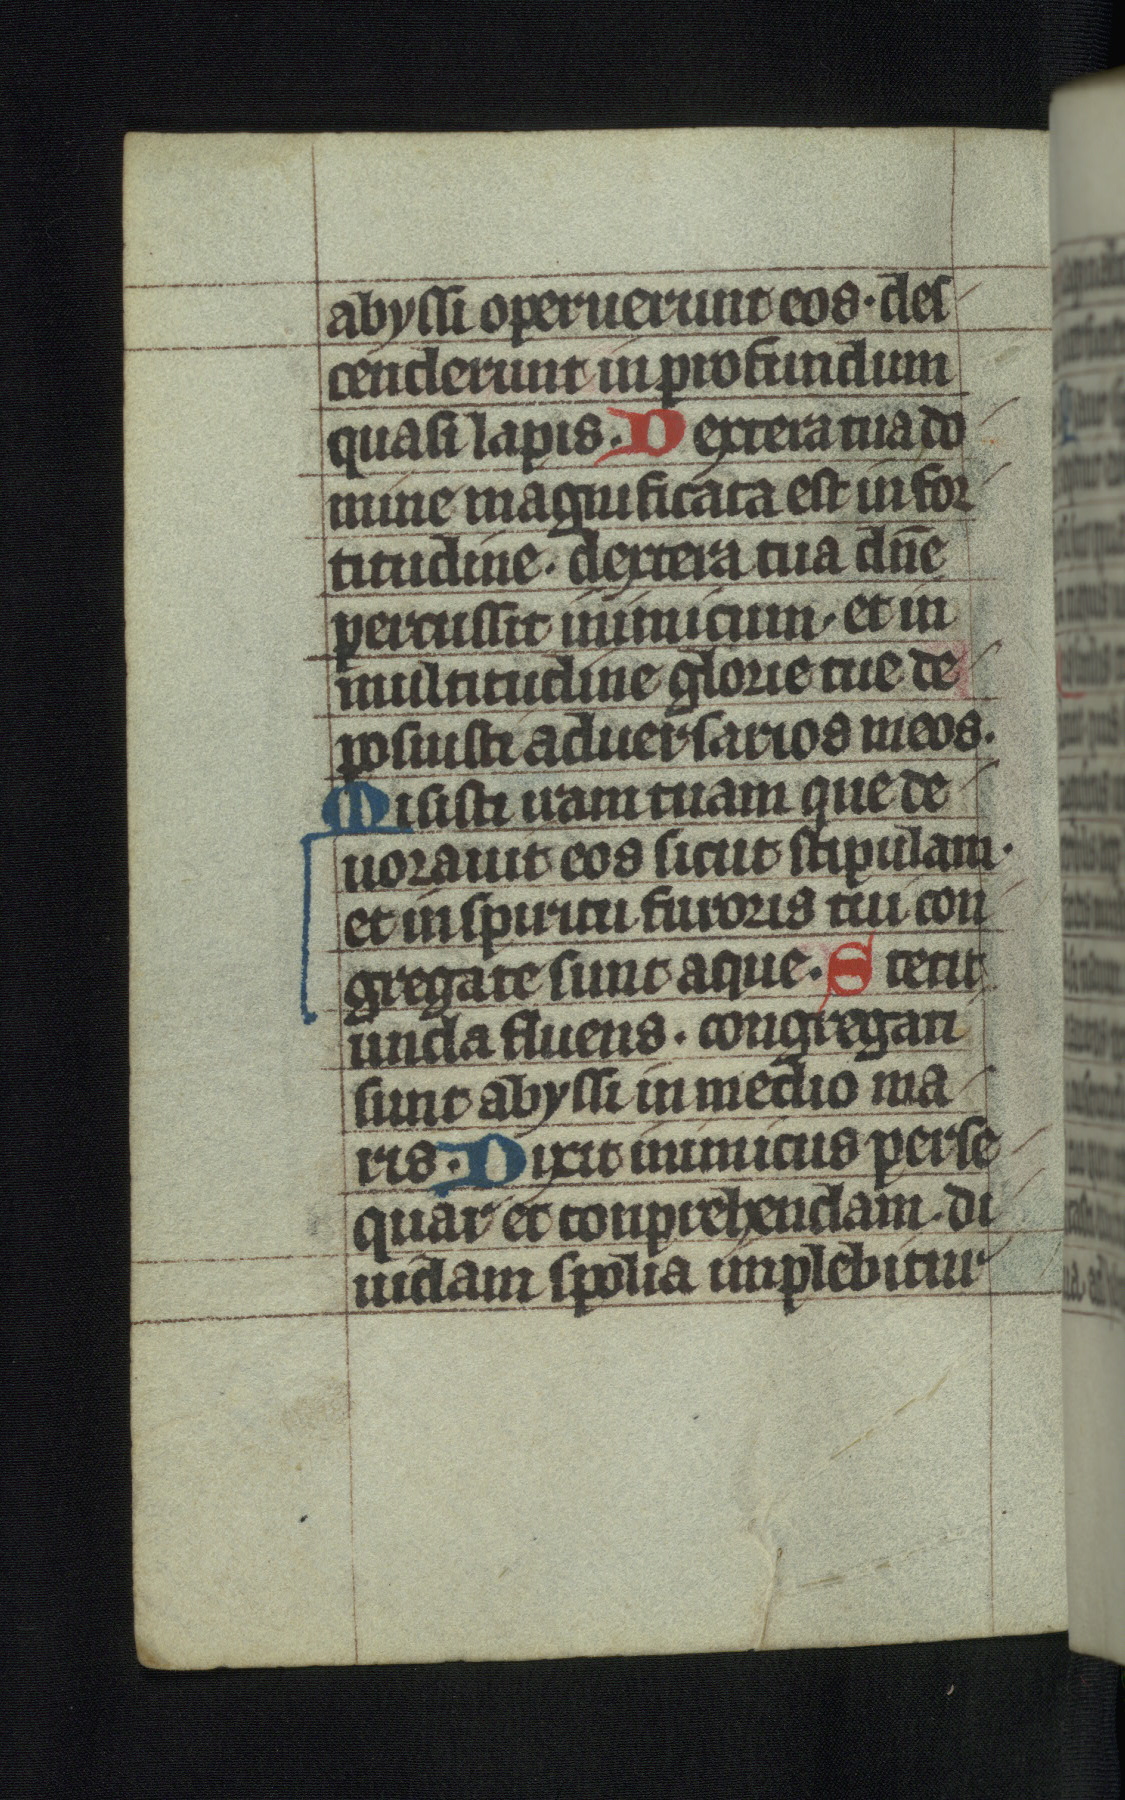 abyssi operuerunt eos · des
cenderunt in profundum
quasi lapis · Dextera tua do
mine magnificata est in for
titudine · dextera tua dn̄e
percussit inimicum · et in
multitudine glorie tue de
posuisti aduersarios meos ·
Misisti iram tuam que de
uorauit eos sicut stipulam ·
et in spiritu furoris tui con
gregate sunt aque · Stetit
unda fluens · congregati
sunt abyssi in medio ma
ris · Dixit inimicus perse
quar et conprehendam · di
uidam spolia implebitur